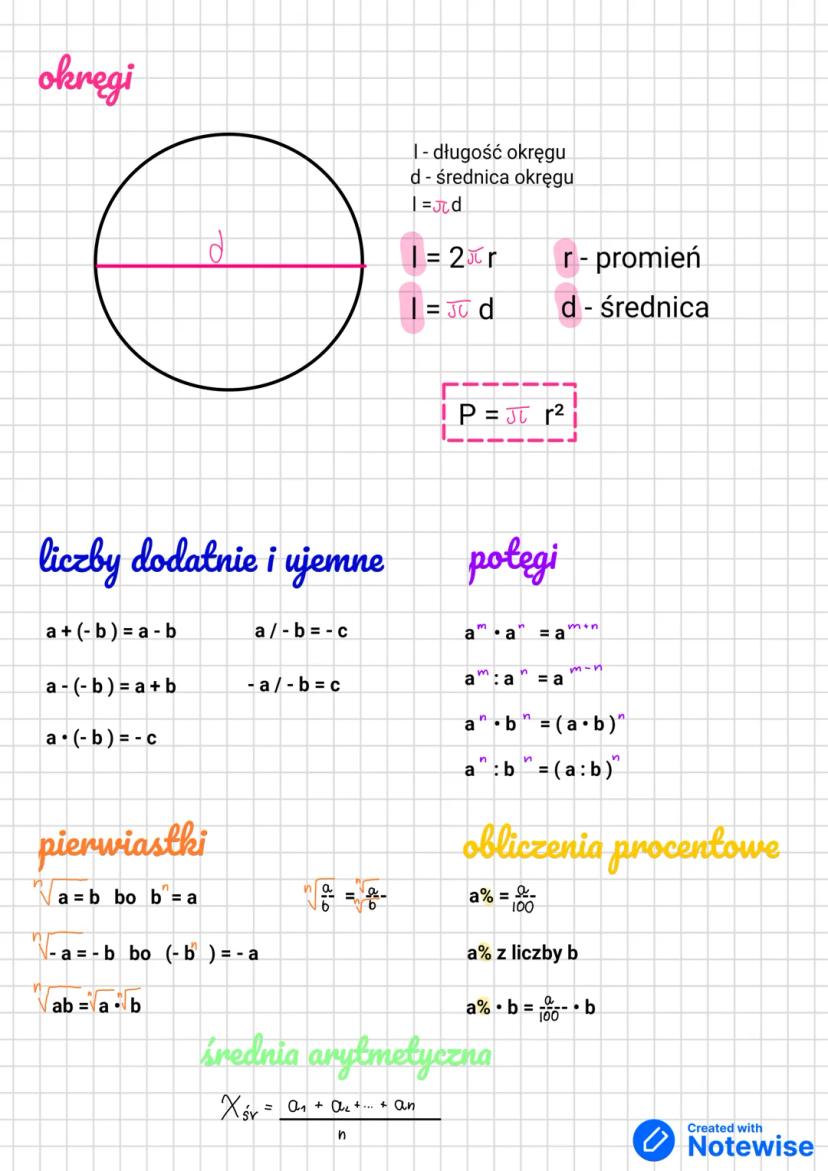 okręgi
l - długość okręgu
d - średnica okręgu
l = π d
d
l = 2 π r r - promień
l = π d d - średnica
P = π r²
liczby dodatnie i ujemne
a + (- b ) = a - b a / - b = - c
a - (- b ) = a + b - a / - b = c
a • (- b ) = - c
potęgi
aᵐ • aⁿ = aᵐ⁺ⁿ
aᵐ : aⁿ = aᵐ⁻ⁿ
aⁿ • bⁿ = ( a • b )ⁿ
aⁿ : bⁿ = ( a : b )ⁿ
pierwiastki
ⁿ√a = b bo bⁿ = a ⁿ√(a/b) = ⁿ√a/ⁿ√b
ⁿ√- a = - b bo (- bⁿ ) = - a
ⁿ√ab = ⁿ√a • ⁿ√b
obliczenia procentowe
a% = a/100
a% z liczby b
a% • b = a/100 • b
średnia arytmetyczna
Xśr = a₁ + a₂ + ... + an
n
Created with
Notewise